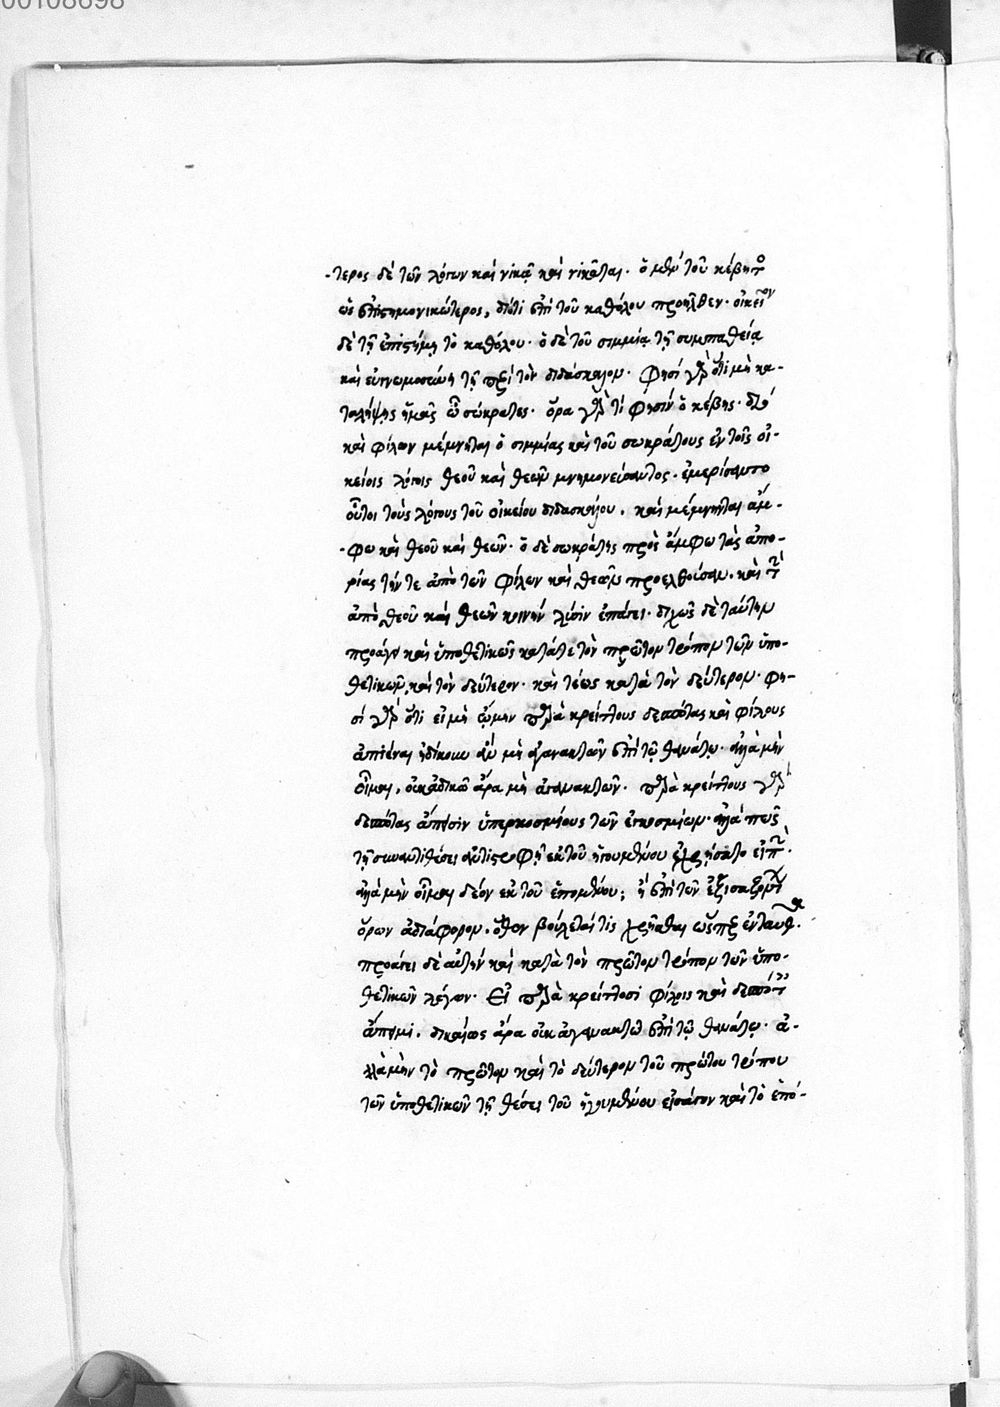 00108698
-τερος δὲ τῶν λόγων καὶ νικᾷ καὶ νικᾶται· ὁ μὲν τοῦ κέβητος
ὡς ἐπιστημονικώτερος, διότι ἐπὶ τοῦ καθόλου προῆλθεν· οἰκεῖον
δὲ τῇ ἐπιστήμῃ τὸ καθόλου· ὁ δὲ τοῦ σιμμία τῇ συμπαθείᾳ
καὶ εὐγνωμοσύνῃ τῇ περὶ τὸν διδάσκαλον· Φησί γὰρ ὅτι μὴ κα-
ταλήψῃς ἡμᾶς ὦ σώκρατες· ὅρα γὰρ τί φησὶν ὁ κέβης· διὸ
καὶ φίλων μέμνηται ὁ σιμμίας καὶ τοῦ σωκράτους ἐν τοῖς οἰ-
κείοις λόγοις θεοῦ καὶ θεῶν μνημονεύσαντος· ἐμερίσαντο
οὗτοι τοὺς λόγους τοῦ οἰκείου διδασκάλου· καὶ μέμνηται ἄμ-
-φω καὶ θεοῦ καὶ θεῶν· ὁ δὲ σωκράτης πρὸς ἄμφω τὰς ἀπο-
ρίας τήν τε ἀπὸ τῶν φίλων καὶ θεῶν προελθοῦσαν· καὶ τὴν
ἀπὸ θεοῦ καὶ θεῶν κοινὴν λύσιν ἐπάγει· διχῶς δὲ ταύτην
προάγει καὶ ὑποθετικῶς κατά τε τὸν πρῶτον τρόπον τῶν ὑπο-
θετικῶν, καὶ τὸν δεύτερον· καὶ τέως κατὰ τὸν δεύτερον· φη-
σί γὰρ ὅτι εἰ μὴ ᾤμην παρὰ κρείττους δεσπότας καὶ φίλους
ἀπιέναι ἠδίκουν ἂν μὴ ἀγανακτῶν ἐπὶ τῷ θανάτῳ· ἀλλὰ μὴν
οἶμαι, οὐκ ἀδικῶ ἄρα μὴ ἀγανακτῶν· παρὰ κρείττους γὰρ
δεσπότας ἄπεισιν ὑπερκοσμίους τῶν ἐγκοσμίων· ἀλλὰ πῶς
τῇ συναντιθέσει ἀντιστροφῇ ἐκ τοῦ ἡγουμένου ἐχρήσατο εἰπὼν·
ἀλλὰ μὴν οἶμαι δέον ἐκ τοῦ ἑπομένου; ἢ ἐπὶ τῶν ἐξισαζόντων
ὅρων ἀδιάφορον· ὅθεν βούλεταί τις χρῆσθαι ὥσπερ ἐνταῦθα·
προάγει δὲ αὐτὴν καὶ κατὰ τὸν πρῶτον τρόπον τῶν ὑπο-
θετικῶν λέγων· Εἰ παρὰ κρείττοσι φίλοις καὶ δεσπόταις
ἄπειμι· δικαίως ἄρα οὐκ ἀγανακτῶ ἐπὶ τῷ θανάτῳ· ἀ-
λλὰ μὴν τὸ πρῶτον καὶ τὸ δεύτερον τοῦ πρώτου τρόπου
τῶν ὑποθετικῶν τῇ θέσει τοῦ ἡγουμένου εἰσάγον καὶ τὸ ἑπό-